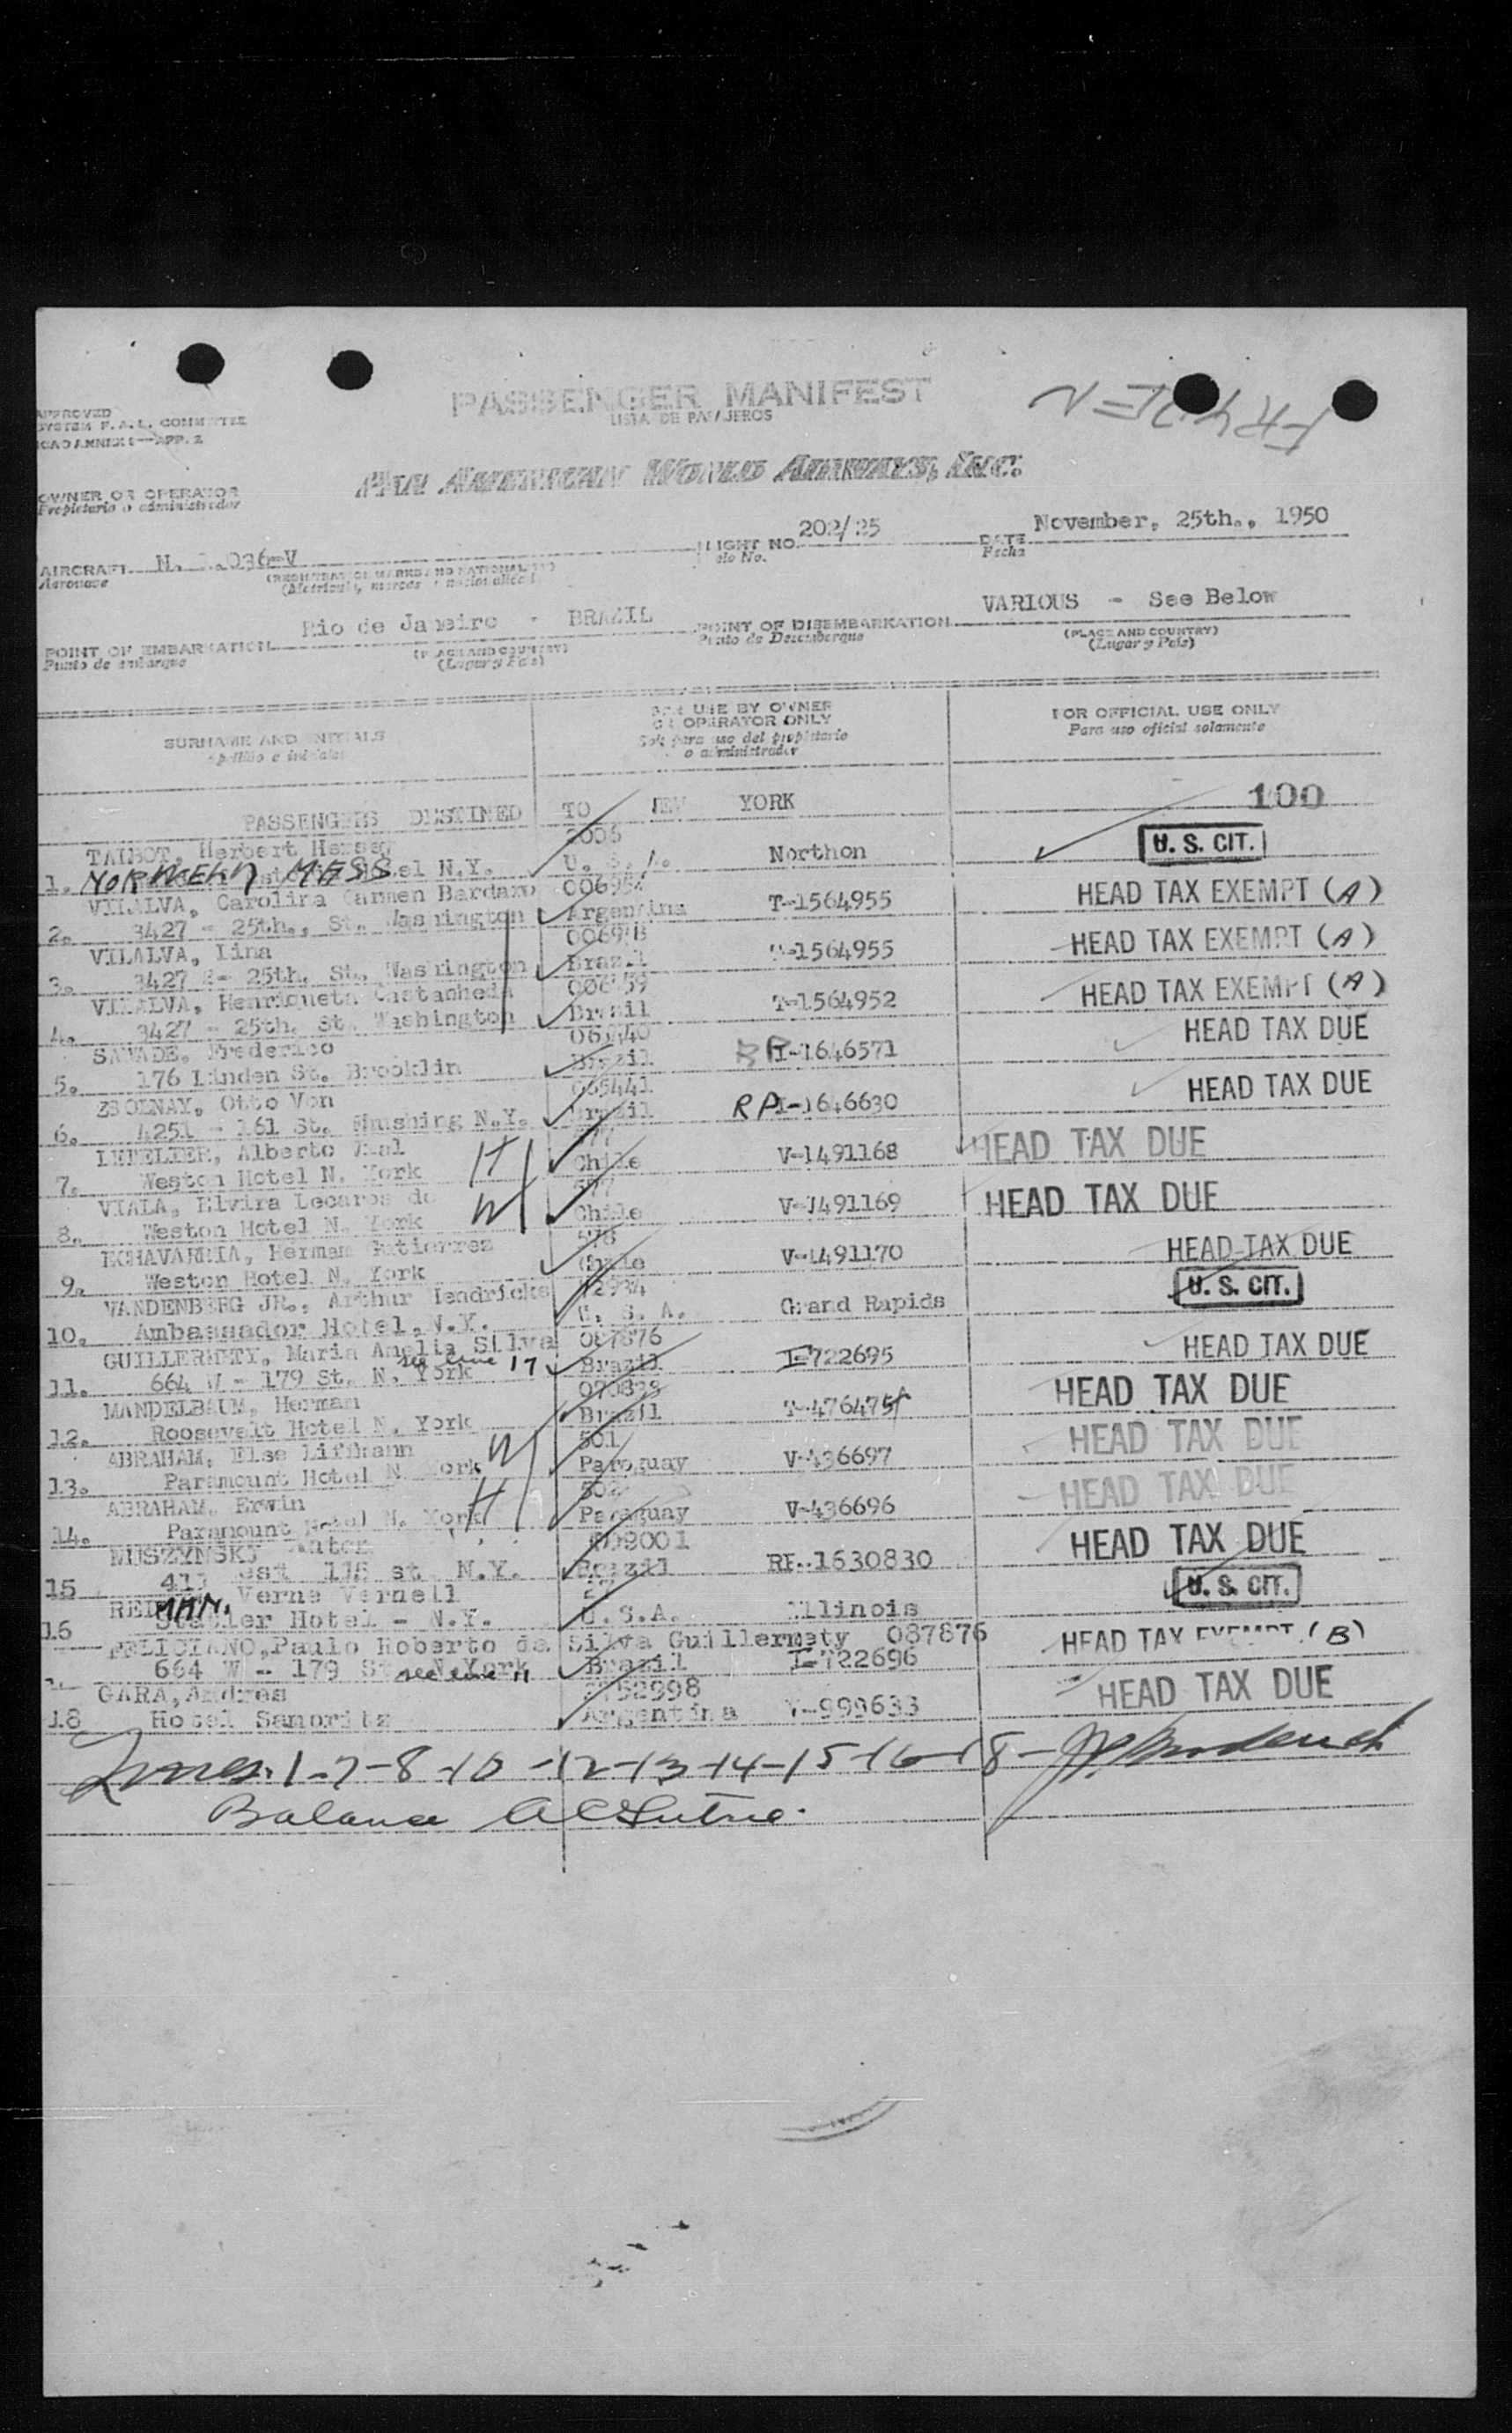 PASSENGER MANIFEST
LISTA DE PASAJEROS
APPROVED
SYSTEM F.A.L. COMMITTEE
ICAO ANNEX 9—APP. 2
PAN AMERICAN WORLD AIRWAYS, INC.
OWNER OR OPERATOR
Propietario o administrador
AIRCRAFT N. 036-V
Aeronave
(REGISTRATION MARKS AND NATIONALITY)
(Matricula, marcas y nacionalidad)
FLIGHT NO. 202/25
Vuelo No.
DATE November, 25th., 1950
Fecha
POINT OF EMBARKATION Rio de Janeiro - BRAZIL
Punto de embarque
(PLACE AND COUNTRY)
(Lugar y Pais)
POINT OF DISEMBARKATION VARIOUS - See Below
Punto de Desembarque
(PLACE AND COUNTRY)
(Lugar y Pais)
SURNAME AND INITIALS
Apellido e iniciales
FOR USE BY OWNER
OR OPERATOR ONLY
Solo para uso del propietario
o administrador
FOR OFFICIAL USE ONLY
Para uso oficial solamente
PASSENGERS DESTINED TO NEW YORK 100
TALBOT, Herbert
1. N.Y. U. S. A. Northon U. S. CIT.
VILALVA, Carolina Carmen Bardaxo
2. 3427 - 25th., St. Washington Argentina T-1564955 HEAD TAX EXEMPT (A)
VILALVA, Lina
3. 3427 - 25th. St. Washington Brazil 1564955 HEAD TAX EXEMPT (A)
VILALVA, Henriqueta Castanheda
4. 3427 - 25th. St. Washington Brazil T-1564952 HEAD TAX EXEMPT (A)
Frederico
5. 176 Linden St. Brooklin Brazil 1646571 HEAD TAX DUE
ZSOLNAY, Otto Von 065441
6. 4251 - 161 St. Flushing N.Y. Brazil RP 1646630 HEAD TAX DUE
LETELIER, Alberto Vial 577
7. Weston Hotel N. York H Chile V-1491168 HEAD TAX DUE
VIALA, Elvira Lecaros de 577
8. Weston Hotel N. York W Chile V-1491169 HEAD TAX DUE
ECHAVARRIA, Herman Gutierrez 578
9. Weston Hotel N. York Chile V-1491170 HEAD TAX DUE
VANDENBERG JR., Arthur Hendricks
10. Ambassador Hotel, N.Y. U. S. A. Grand Rapids U. S. CIT.
GUILLERMETY, Maria Amelia Silva 087876
11. 664 W - 179 St. N. York see line 17 Brazil I-722695 HEAD TAX DUE
MANDELBAUM, Herman
12. Roosevelt Hotel N. York Brazil 476475 HEAD TAX DUE
ABRAHAM, Else Liffmann 501
13. Paramount Hotel N. York W Paraguay V-436697 HEAD TAX DUE
ABRAHAM, Erwin 502
14. Paramount Hotel N. York H Paraguay V-436696 HEAD TAX DUE
MUSZYNSKI 009001
15 st N.Y. Brazil RE-1630830 HEAD TAX DUE
Verne Vernell
16 Statler Hotel - N.Y. U.S.A. Illinois U. S. CIT.
FELICIANO, Paulo Roberto da Silva Guillermety 087876
664 W - 179 St. N. York see line 11 Brazil I-722696 HEAD TAX EXEMPT (B)
GARA, Andres 2752998
18 Hotel Sanoritz Argentina V-999633 HEAD TAX DUE
Lines. 1-7-8-10-12-13-14-15-16-18-
Balance